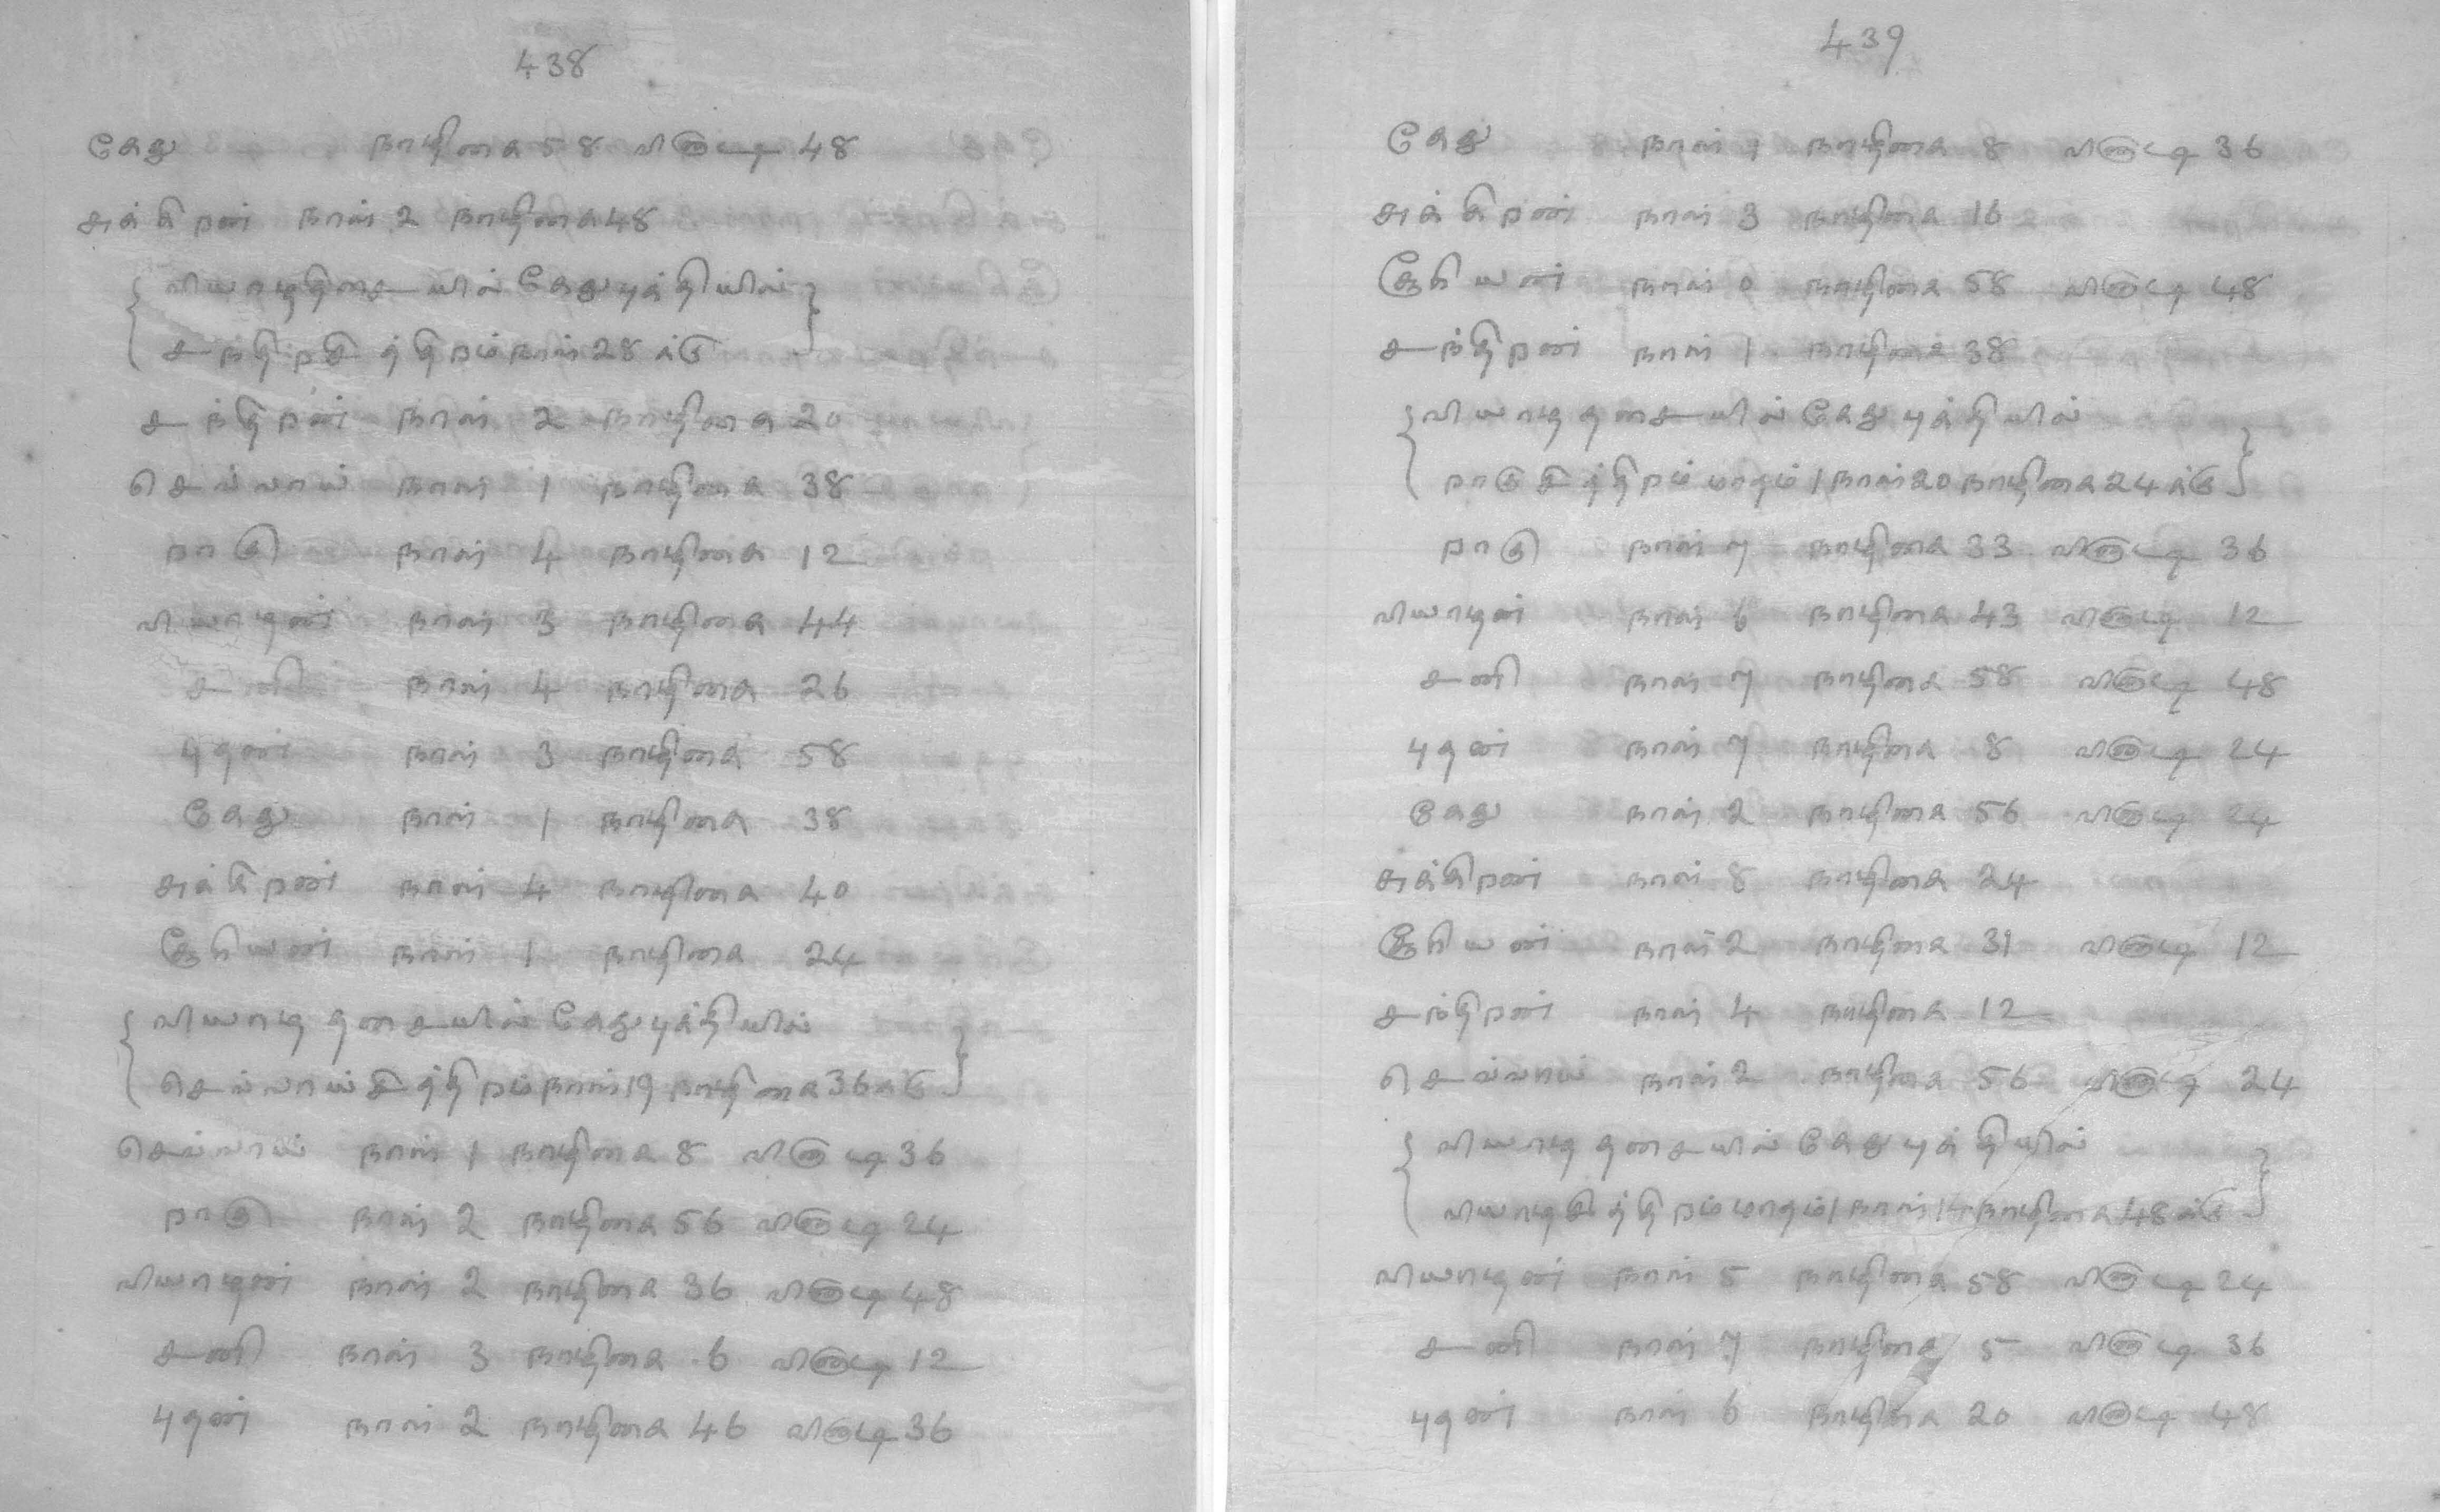 438
கேது நாழிகை 58 வினாடி 48
சுக்கிரன் நாள் 2 நாழிகை 48
வியாழதிசையில் கேதுபுக்தியில்
சந்திரசித்திரம் நாள் 28 க்கு
சந்திரன் நாள் 2 நாழிகை 20
செவ்வாய் நாள் 1 நாழிகை 38
ராகு நாள் 4 நாழிகை 12
வியாழன் நாள் 3 நாழிகை 44
சனி நாள் 4 நாழிகை 26
புதன் நாள் 3 நாழிகை 58
கேது நாள் 1 நாழிகை 38
சுக்கிரன் நாள் 4 நாழிகை 40
சூரியன் நாள் 1 நாழிகை 24
வியாழ திசையில் கேதுபுக்தியில்
செவ்வாய்சித்திரம் நாள் 19 நாழிகை 36 க்கு
செவ்வாய் நாள் 1 நாழிகை 8 வினாடி 36
ராகு நாள் 2 நாழிகை 56 வினாடி 24
வியாழன் நாள் 2 நாழிகை 36 வினாடி 48
சனி நாள் 3 நாழிகை 6 வினாடி 12
புதன் நாள் 2 நாழிகை 46 வினாடி 36
439
கேது நாள் 1 நாழிகை 8 வினாடி 36
சுக்கிரன் நாள் 3 நாழிகை 16
சூரியன் நாள் 0 நாழிகை 58 வினாடி 48
சந்திரன் நாள் 1 நாழிகை 38
வியாழ திசையில் கேது புக்தியில்
ராகுசித்திரம் மாதம் 1 நாள் 20 நாழிகை 24 க்கு
ராகு நாள் 7 நாழிகை 33 வினாடி 36
வியாழன் நாள் 6 நாழிகை 43 வினாடி 12
சனி நாள் 7 நாழிகை 58 வினாடி 48
புதன் நாள் 7 நாழிகை 8 வினாடி 24
கேது நாள் 2 நாழிகை 56 வினாடி 24
சுக்கிரன் நாள் 8 நாழிகை 24
சூரியன் நாள் 2 நாழிகை 31 வினாடி 12
சந்திரன் நாள் 4 நாழிகை 12
செவ்வாய் நாள் 2 நாழிகை 56 வினாடி 24
வியாழ திசையில் கேது புக்தியில்
வியாழசித்திரம் மாதம் 1 நாள் 14 நாழிகை 48 க்கு
வியாழன் நாள் 5 நாழிகை 58 வினாடி 24
சனி நாள் 7 நாழிகை 5 வினாடி 36
புதன் நாள் 6 நாழிகை 20 வினாடி 48